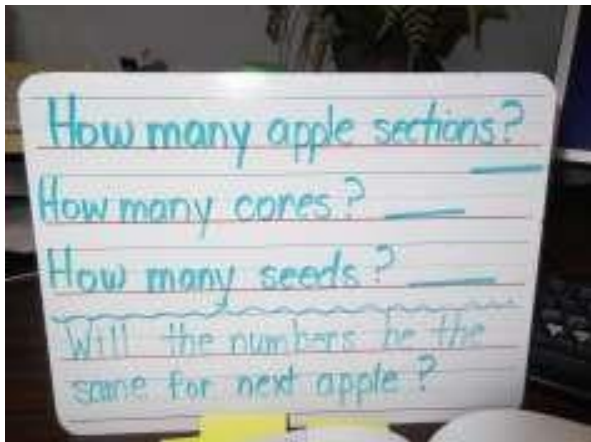 How many apple sections?
How many cores? ____
How many seeds? ____
Will the numbers be the
same for next apple?